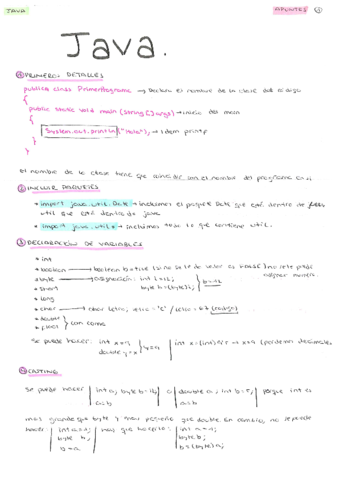 JAVA
APUNTES 1
Java.
1 PRIMEROS DETALLES
public class PrimerPrograma → Declara el nombre de la clase del código
{
public static void main (String [] args) → inicio del main
{
System.out.println("Hola"); → Idem printf
}
}
el nombre de la clase tiene que coincidir con el nombre del programa en sí
2 INCLUIR PAQUETES
* import java.util.Date → incluimos el paquete Date que está dentro de
util que está dentro de java.
* import java.util.* → incluimos todo lo que contiene util.
3 DECLARACIÓN DE VARIABLES
* int
* boolean → boolean b = true (si no se le da valor es FALSE) no se le puede asignar número.
* byte → asignación: int i = 12;
byte b = (byte) i;
b = 12
* short
* long
* char → char letra; letra = 'C' / letra = 67 (código)
* double
* float
con coma
Se puede hacer: int x = 4;
double y = x
y = 4
int x = (int) 4'5 → x = 4 (perdemos decimales)
4 CASTING
Se puede hacer int a; byte b = 12;
a = b
o double a; int b = 5;
a = b
porque int es
más grande que byte y más pequeño que double. En cambio, no se puede
hacer: int a = 1;
byte b;
b = a
hay que hacerlo: int a = 1;
byte b;
b = (byte) a;